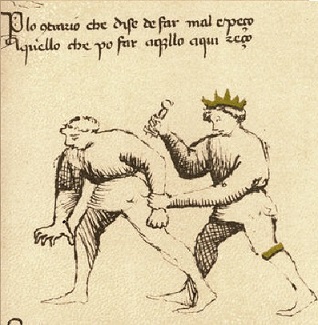 Plo contrario che dise de far mal e peço
Aquello che po far aquello aqui reço